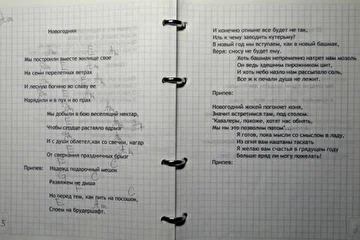 Новогодняя
Am E Am
Мы построили вместе жилище свое
На семи перелетных ветрах
И лесную богиню во славу ее
Нарядили и в пух и во прах
Мы добыли в бою веселящий нектар,
Чтобы сердце растаяло вдрызг
И с души облетел, как со свечки, нагар
От сверкания праздничных брызг
Припев: Надежд подарочный мешок
Развяжем не дыша
Но перед тем, как пить на посошок,
Споем на брудершафт.
5
И конечно отныне все будет не так,
Иль к чему заводить кутерьму?
В новый год мы вступаем, как в новый башмак,
Веря: сносу не будет ему.
Хоть башмак непременно натрет нам мозоль
Он ведь здешним пирожником шит,
И хоть небо назло нам рассыпало соль,
Все ж к печали душа не лежит.
Припев:
Новогодний жокей погоняет коня,
Значит встретимся там, под столом.
"Кавалеры, похоже, хотят нас обнять,
Мы им это позволим потом".
Я готов, пока мысли со смыслом в ладу,
Из огня вам каштаны таскать
Я желаю вам счастья в грядущем году
Больше вряд ли могу пожелать!
Припев: